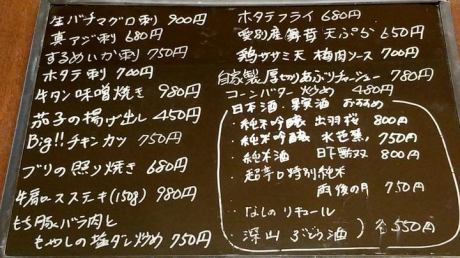 生バチマグロ刺 900円
真アジ刺 680円
するめいか刺 750円
ホタテ刺 700円
牛タン味噌焼き 980円
茄子の揚げ出し 450円
Big!!チキンカツ 750円
ブリの照り焼き 680円
牛肩ロースステーキ(150g) 980円
もち豚バラ肉と
もやしの塩ダレ炒め 750円
ホタテフライ 680円
愛別産舞茸天ぷら 650円
鶏ササミ天 梅肉ソース 700円
自家製厚切りあぶりチャーシュー 780円
コーンバター炒め 480円
日本酒・果実酒 おすすめ
・純米吟醸 出羽桜 800円
・純米吟醸 水芭蕉 750円
・純米酒 日下無双 800円
・超辛口特別純米
雨後の月 750円
・なしのリキュール
・深山ぶどう酒 各550円